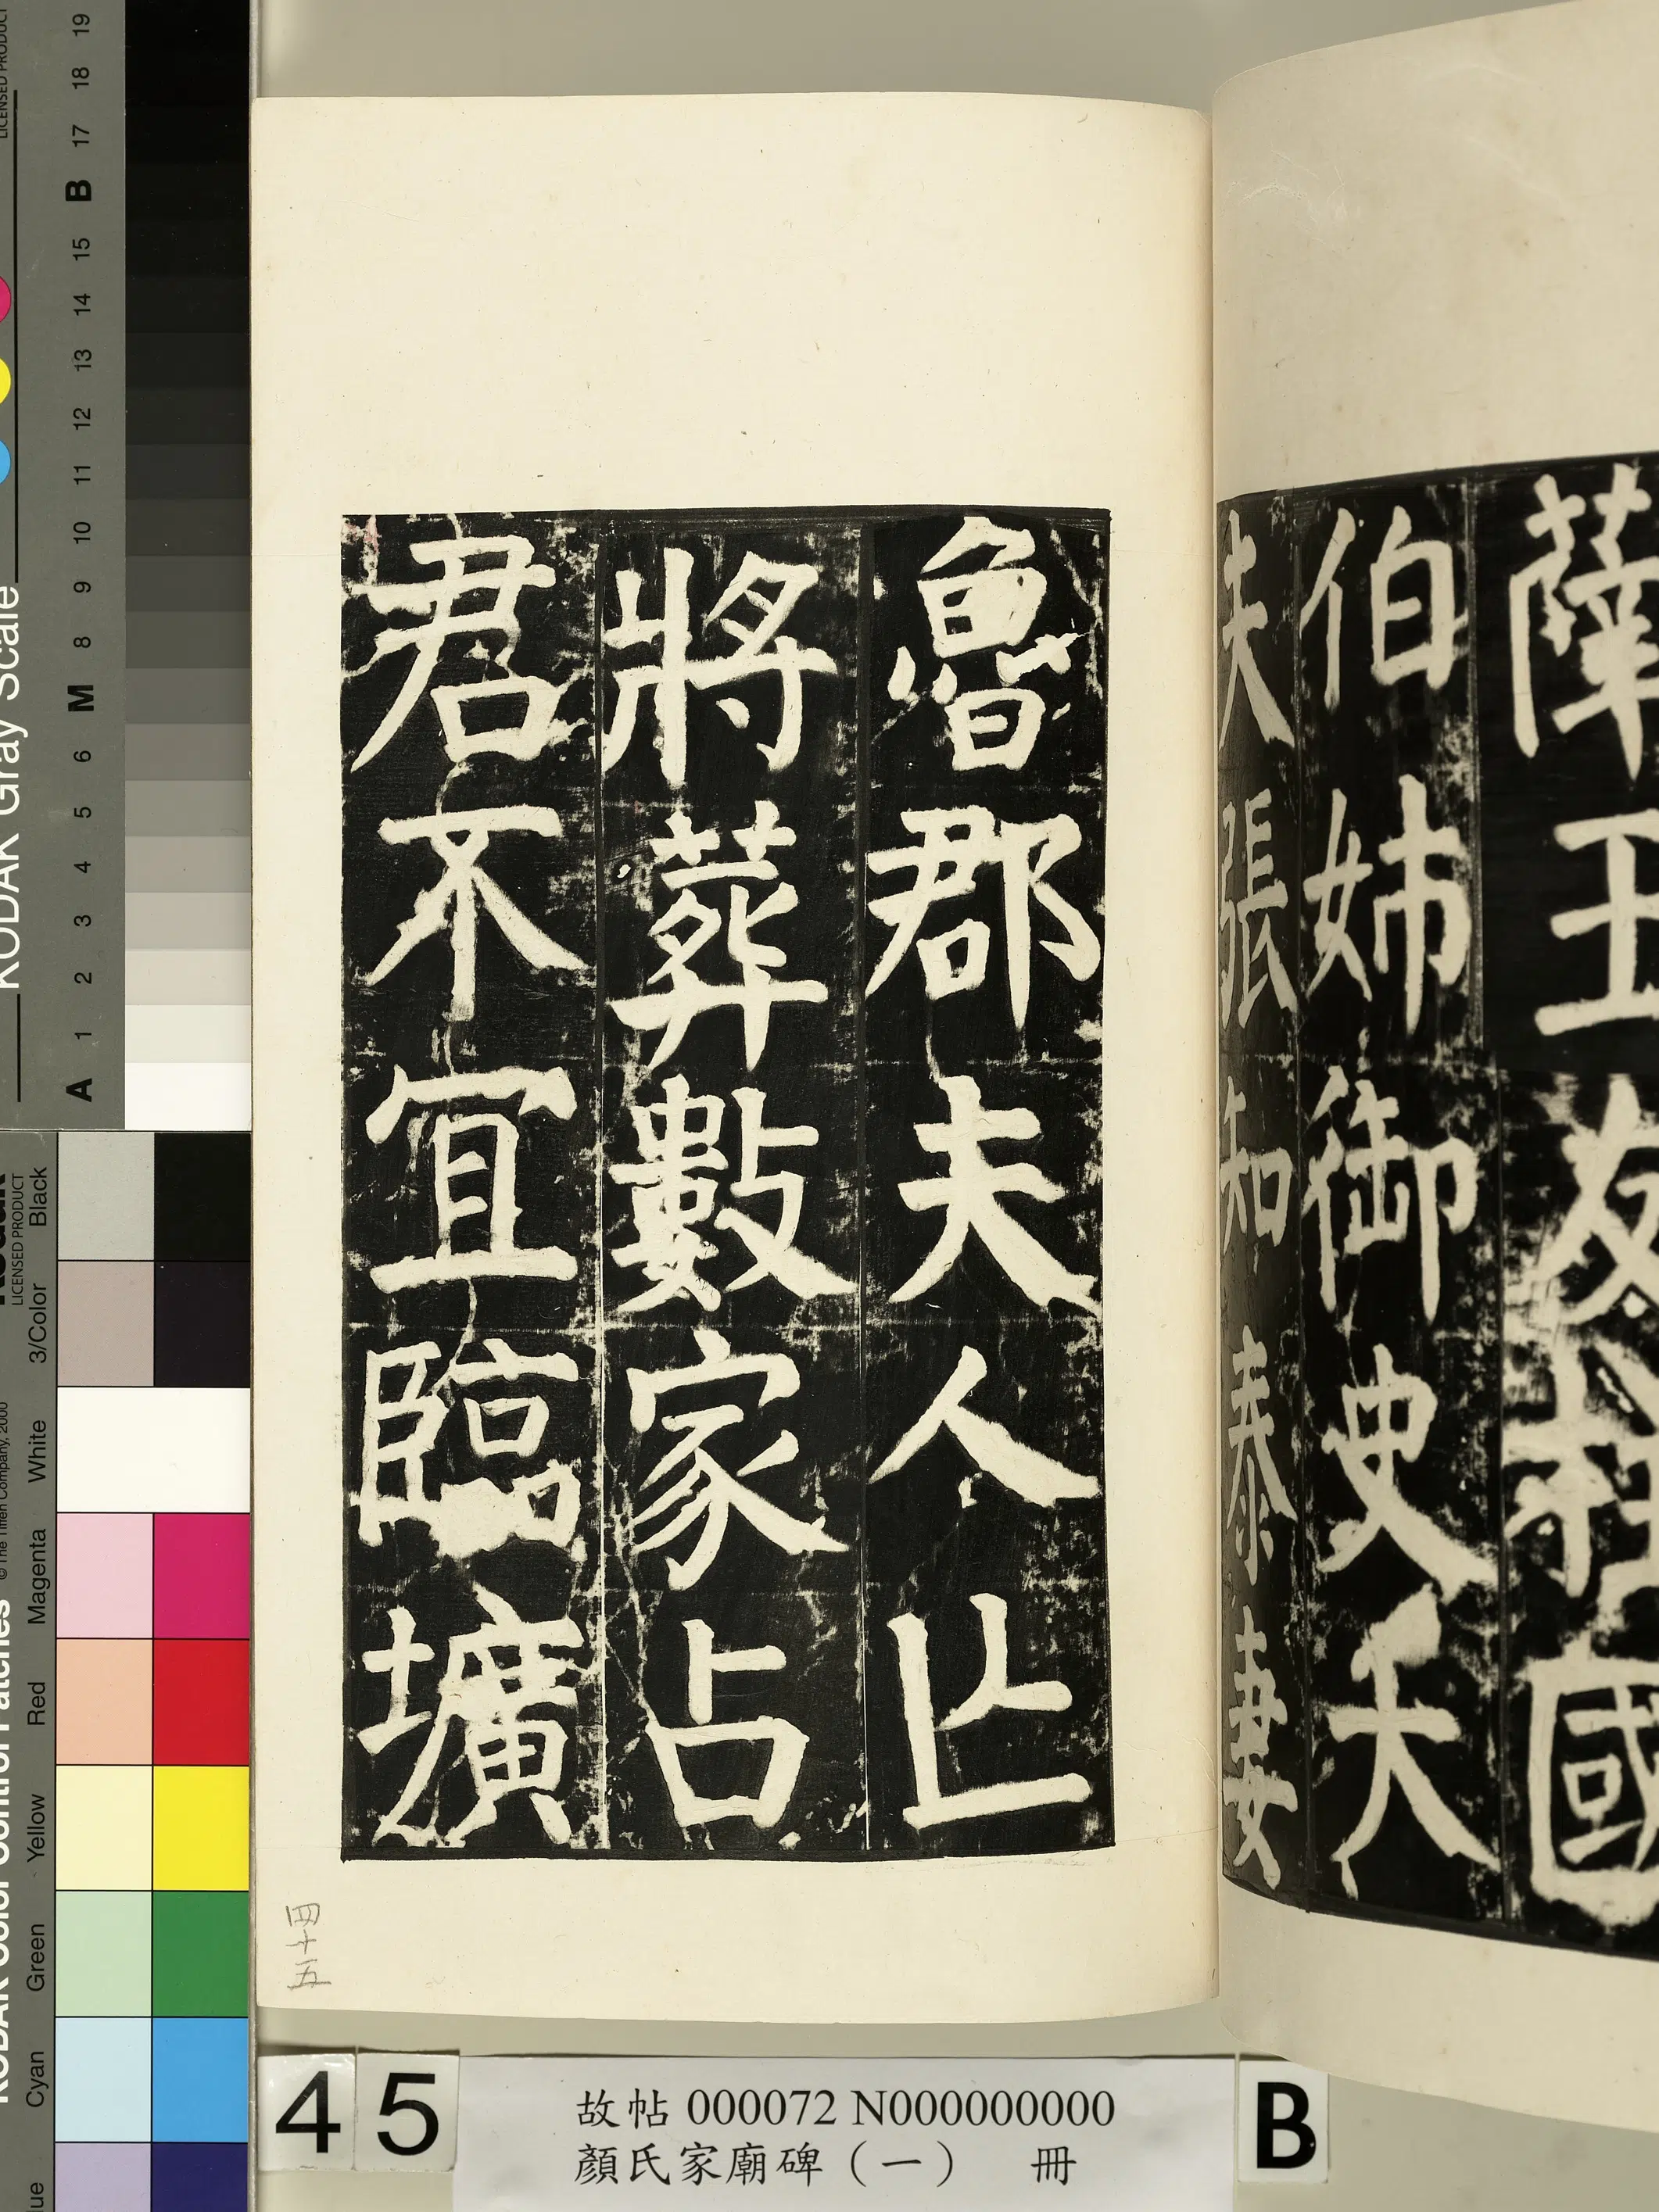 薛王友柱國
伯姉御史大
夫張知泰妻
魯郡夫人亡
將葬數家占
君不宜臨壙
四十五
45
故帖 000072 N000000000
顏氏家廟碑（一） 冊
B
KODAK Gray Scale
LICENSED PRODUCT
A 1 2 3 4 5 6 M 8 9 10 11 12 13 14 15 B 17 18 19
LICENSED PRODUCT
© The Tiffen Company, 2000
Cyan Green Yellow Red Magenta White 3/Color Black